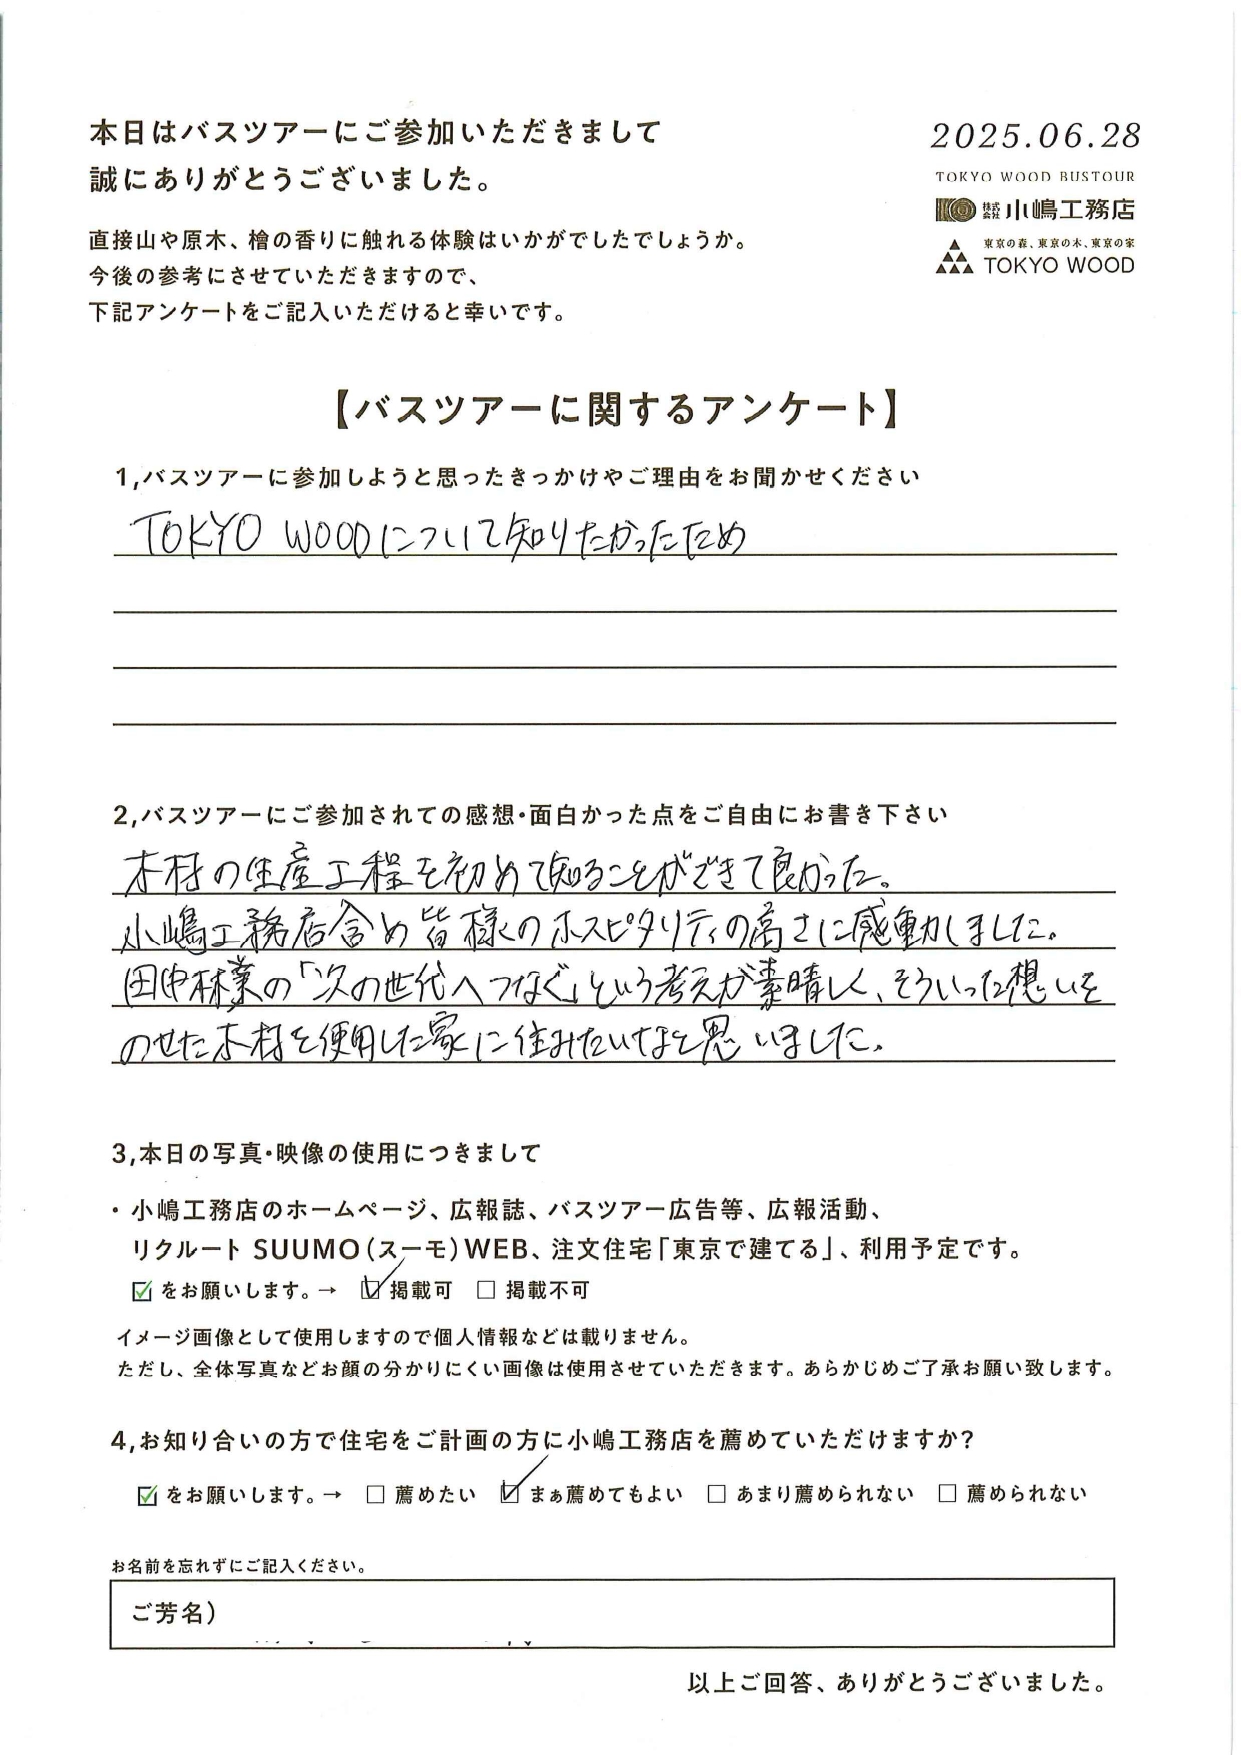 本日はバスツアーにご参加いただきまして
誠にありがとうございました。
2025.06.28
TOKYO WOOD BUSTOUR
株式会社 小嶋工務店
東京の森、東京の木、東京の家
TOKYO WOOD
直接山や原木、檜の香りに触れる体験はいかがでしたでしょうか。
今後の参考にさせていただきますので、
下記アンケートをご記入いただけると幸いです。
【バスツアーに関するアンケート】
1,バスツアーに参加しようと思ったきっかけやご理由をお聞かせください
TOKYO WOODについて知りたかったため
2,バスツアーにご参加されての感想・面白かった点をご自由にお書き下さい
木材の生産工程を初めて知ることができて良かった。
小嶋工務店含め皆様のホスピタリティの高さに感動しました。
田中林業の「次の世代へつなぐ」という考えが素晴しく、そういった想いを
のせた木材を使用した家に住みたいなと思いました。
3,本日の写真・映像の使用につきまして
・小嶋工務店のホームページ、広報誌、バスツアー広告等、広報活動、
リクルート SUUMO(スーモ)WEB、注文住宅「東京で建てる」、利用予定です。
☑ をお願いします。→ ☑ 掲載可 □ 掲載不可
イメージ画像として使用しますので個人情報などは載りません。
ただし、全体写真などお顔の分かりにくい画像は使用させていただきます。あらかじめご了承お願い致します。
4,お知り合いの方で住宅をご計画の方に小嶋工務店を薦めていただけますか?
☑ をお願いします。→ □ 薦めたい ☑ まぁ薦めてもよい □ あまり薦められない □ 薦められない
お名前を忘れずにご記入ください。
ご芳名)
以上ご回答、ありがとうございました。